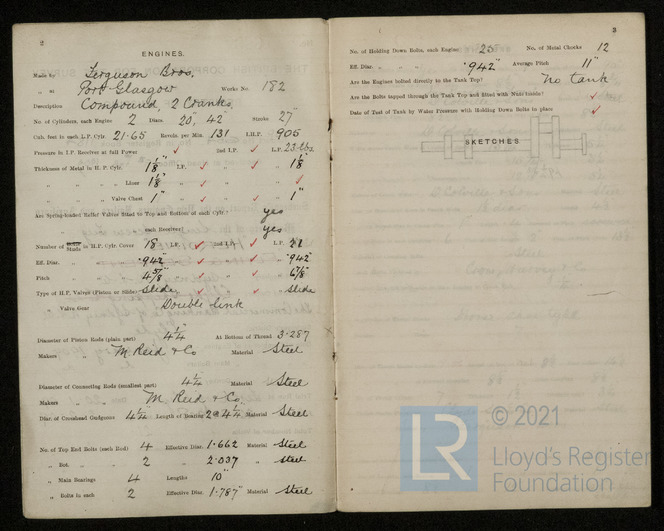 2
ENGINES.
Made by Ferguson Bros.
„ at Port Glasgow Works No. 182
Description Compound, 2 Cranks,
No. of Cylinders, each Engine 2 Diars. 20" 42" Stroke 27"
Cub. feet in each L.P. Cylr. 21.65 Revols. per Min. 131 I.H.P. 905
Pressure in I.P. Receiver at full Power 2nd I.P. L.P. 23 lbs.
Thickness of Metal in H.P. Cylr. I.P. „
„ „ Liner „ „
„ „ Valve Chest 1" „ „ 1"
Are Spring-loaded Relief Valves fitted to Top and Bottom of each Cylr.? yes
„ „ „ each Receiver? yes
Number of Studs in H.P. Cylr. Cover 18 I.P. 2nd I.P. L.P. 21
Eff. Diar. „ .942" „ „ „ .942"
Pitch „ 4 5/8" „ „ „
Type of H.P. Valves (Piston or Slide) Slide „ „ „ Slide
„ Valve Gear Double link
Diameter of Piston Rods (plain part) 4 1/4" At Bottom of Thread 3.287
Makers „ M. Reid & Co Material Steel
Diameter of Connecting Rods (smallest part) 4 1/4 Material Steel
Makers „ M. Reid & Co.
Diar. of Crosshead Gudgeons 4 1/4 Length of Bearing Material Steel
No. of Top End Bolts (each Rod) 4 Effective Diar. 1.662 Material Steel
„ Bot. „ „ 2 „ 2.037 „ Steel
„ Main Bearings 4 Lengths 10"
„ Bolts in each 2 Effective Diar. 1.787" Material Steel
3
No. of Holding Down Bolts, each Engine No. of Metal Chocks 12
Eff. Diar. „ „ „ .942" Average Pitch 11"
Are the Engines bolted directly to the Tank Top? No tank
Are the Bolts tapped through the Tank Top and fitted with Nuts inside?
Date of Test of Tank by Water Pressure with Holding Down Bolts in place
SKETCHES.
LR
© 2021
Lloyd's Register
Foundation